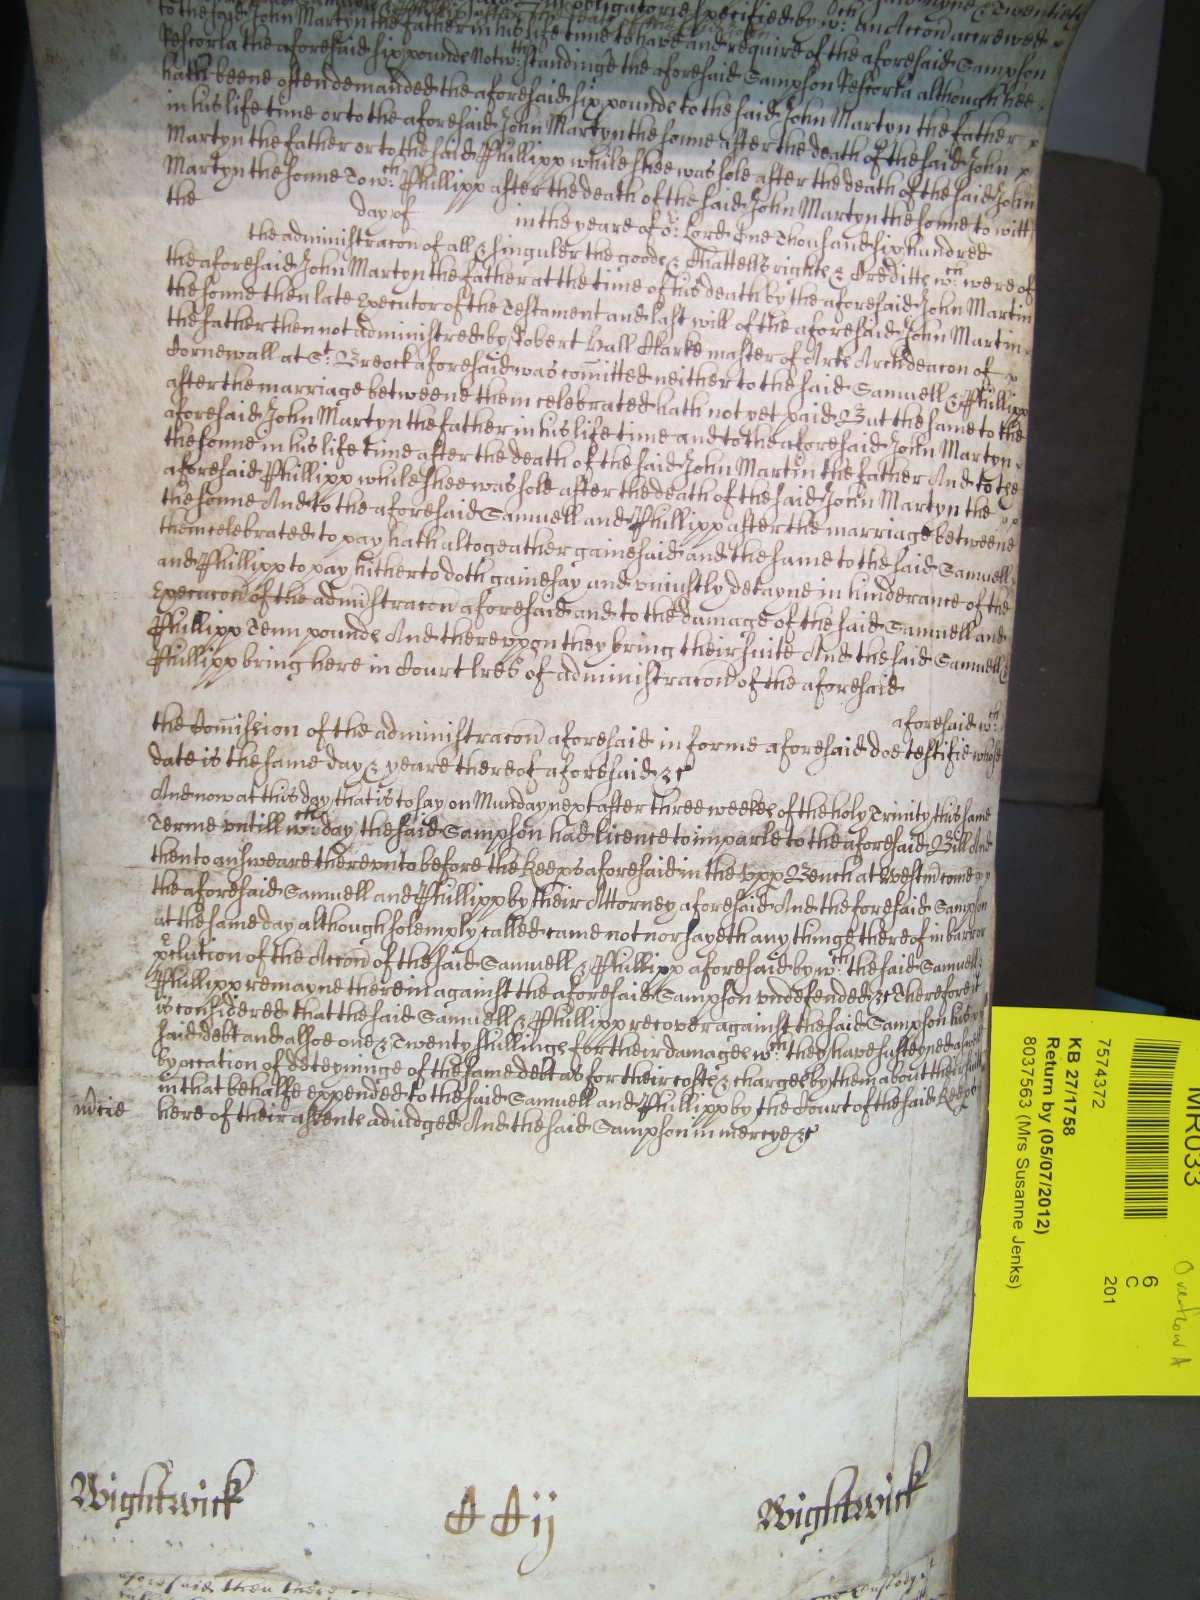 to the said John Martyn the father in his life time to have and require of the aforesaid Sampson
Rescorla the aforesaid six pounds Notwthstandinge the aforesaid Sampson Rescorla although hee
hath beene often demanded the aforesaid six pounds to the said John Martyn the father
in his life time or to the aforesaid John Martyn the sonne after the death of the said John
Martyn the father or to the said Phillipp while shee was sole after the death of the said John
Martyn the sonne To wch Phillipp after the death of the said John Martyn the sonne to witt
the day of in the yeare of or Lord One Thousand six hundred
the administracon of all & singuler the goods & Chattells rights & Creditts wch were of
the aforesaid John Martyn the father at the time of his death by the aforesaid John Martin
the sonne then late executor of the Testament and last will of the aforesaid John Martin
the father then not administred by Robert Hall Clarke master of Arts Archdeacon of
Cornewall at St Breock aforesaid was comitted neither to the said Samuell & Phillipp
after the marriage betweene them celebrated hath not yet paid But the same to the
aforesaid John Martyn the father in his life time and to the aforesaid John Martyn
the sonne in his life time after the death of the said John Martin the father And to the
aforesaid Phillipp while shee was sole after the death of the said John Martyn the
the sonne And to the aforesaid Samuell and Phillipp after the marriage betweene
them celebrated to pay hath altogeather gainesaid and the same to the said Samuell
and Phillipp to pay hitherto doth gainesay and uniustly detayne in hinderance of the
Execucon of the admistracon aforesaid and to the damage of the said Samuell and
Phillipp Tenn pounds And thereupon they bring their suite And the said Samuell &
Phillipp bring here in Court lres of administracon of the aforesaid
aforesaid wch
the Comission of the administracon aforesaid in forme aforesaid doe testifie whose
date is the same day & yeare thereof aforesaid &c
And now at this day that is to say on Munday next after three weekes of the holy Trinity this same
Terme untill wch day the said Sampson had licence to imparle to the aforesaid Bill And
then to answeare thereunto before the Keeps aforesaid in the upp Bench at Westm come
the aforesaid Samuell and Phillipp by their Attorney aforesaid And the foresaid Sampson
at the same day although solemply called came not nor sayeth any thinge thereof in barr or
pclution of the Accon of the said Samuell & Phillipp aforesaid by wch the said Samuell
Phillipp remayne therein against the aforesaid Sampson undefended &c Therefore it
is considered that the said Samuell & Phillipp recover against the said Sampson their
said debt and alsoe one & Twenty shillings for their damages wch they have susteyned aswell
by occation of deteyninge of the same debt as for their costs & charges by them about their suite
in that behalfe expended to the said Samuell and Phillipp by the Court of the said Keeps
mrcie here of their assente adiudged And the said Sampson in mercye &c
Wightwick CCij Wightwick
aforesaid then there
custody
MR033
7574372
KB 27/1758
Return by (05/07/2012)
8037563 (Mrs Susanne Jenks)
6
C
201
Overflow A